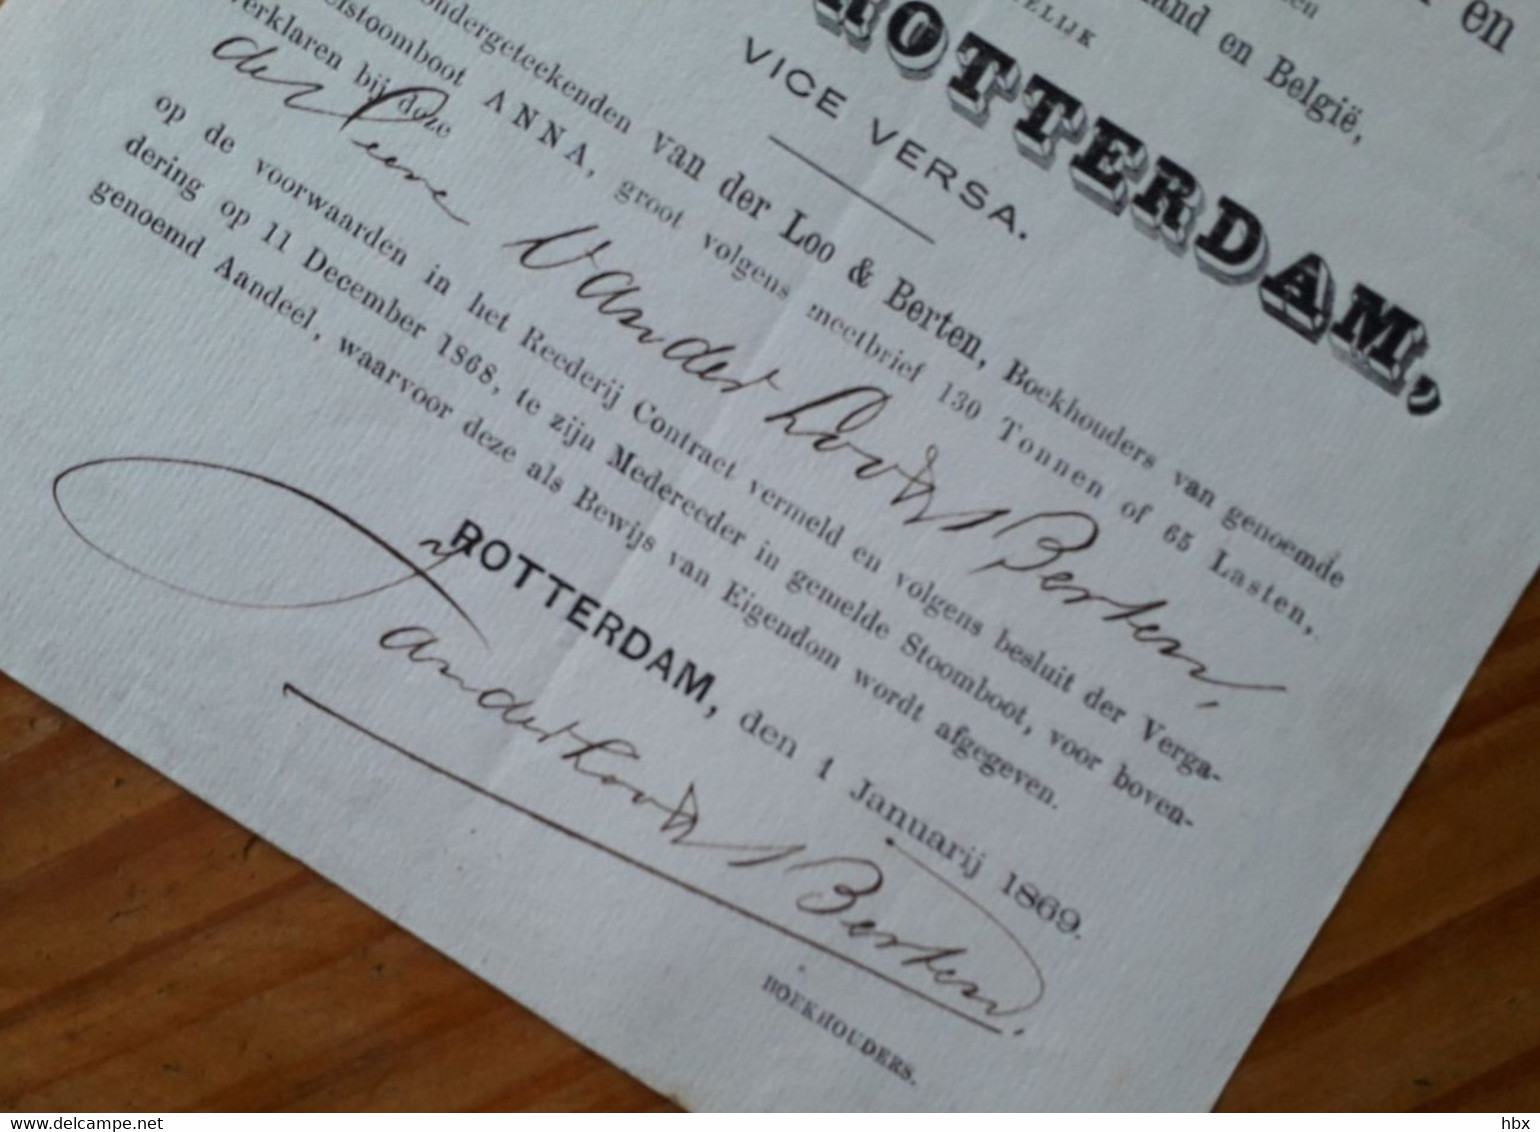 en
land en België,
ELIJK
ROTTERDAM,
VICE VERSA.
ondergeteekenden van der Loo & Berten, Boekhouders van genoemde
stoomboot ANNA, groot volgens meetbrief 130 Tonnen of 65 Lasten,
verklaren bij deze
den Heere Van der Loo & Berten,
op de voorwaarden in het Reederij Contract vermeld en volgens besluit der Verga-
dering op 11 December 1868, te zijn Medereeder in gemelde Stoomboot, voor boven-
genoemd Aandeel, waarvoor deze als Bewijs van Eigendom wordt afgegeven.
ROTTERDAM, den 1 Januarij 1869.
Van der Loo & Berten
BOEKHOUDERS.
www.delcampe.net
hbx